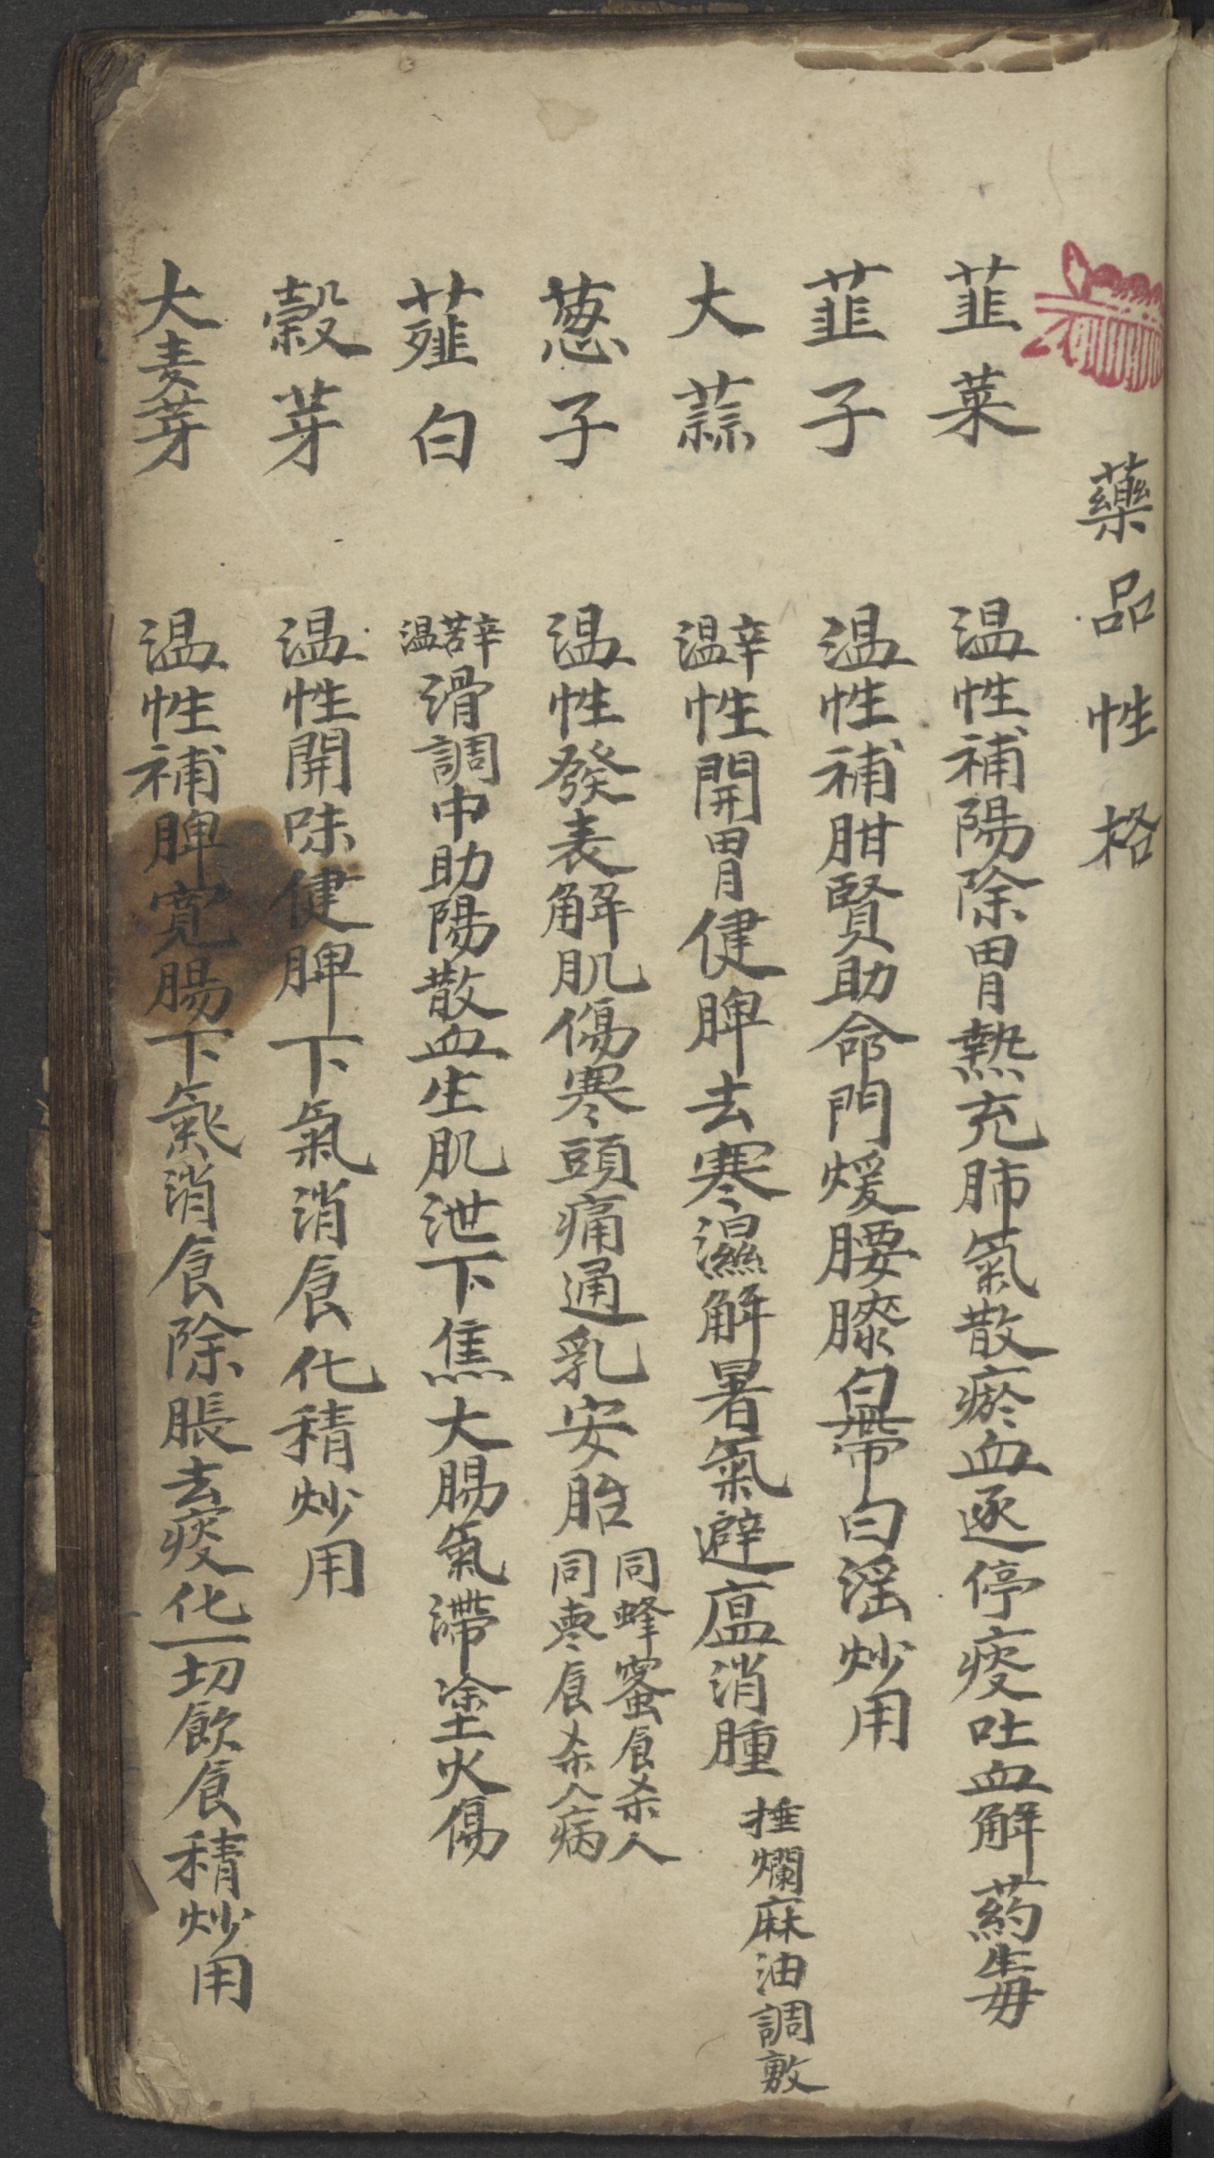 藥品性格
韮菜 温性補陽除胃熱充肺氣散瘀血逐停痰吐血解葯毒
韮子 温性補肝賢助命門煖腰膝白帶白淫炒用
大蒜 辛温性開胃健脾去寒濕解暑氣避瘟消腫 捶爛麻油調敷
葱子 温性發表解肌傷寒頭痛通乳安胎 同蜂蜜食杀人 同枣食杀人病
薤白 辛苦温滑調中助陽散血生肌泄下焦大腸氣滯塗火傷
穀芽 温性開味健脾下氣消食化積炒用
大麦芽 温性補脾寛腸下氣消食除脹去痰化一切飲食積炒用